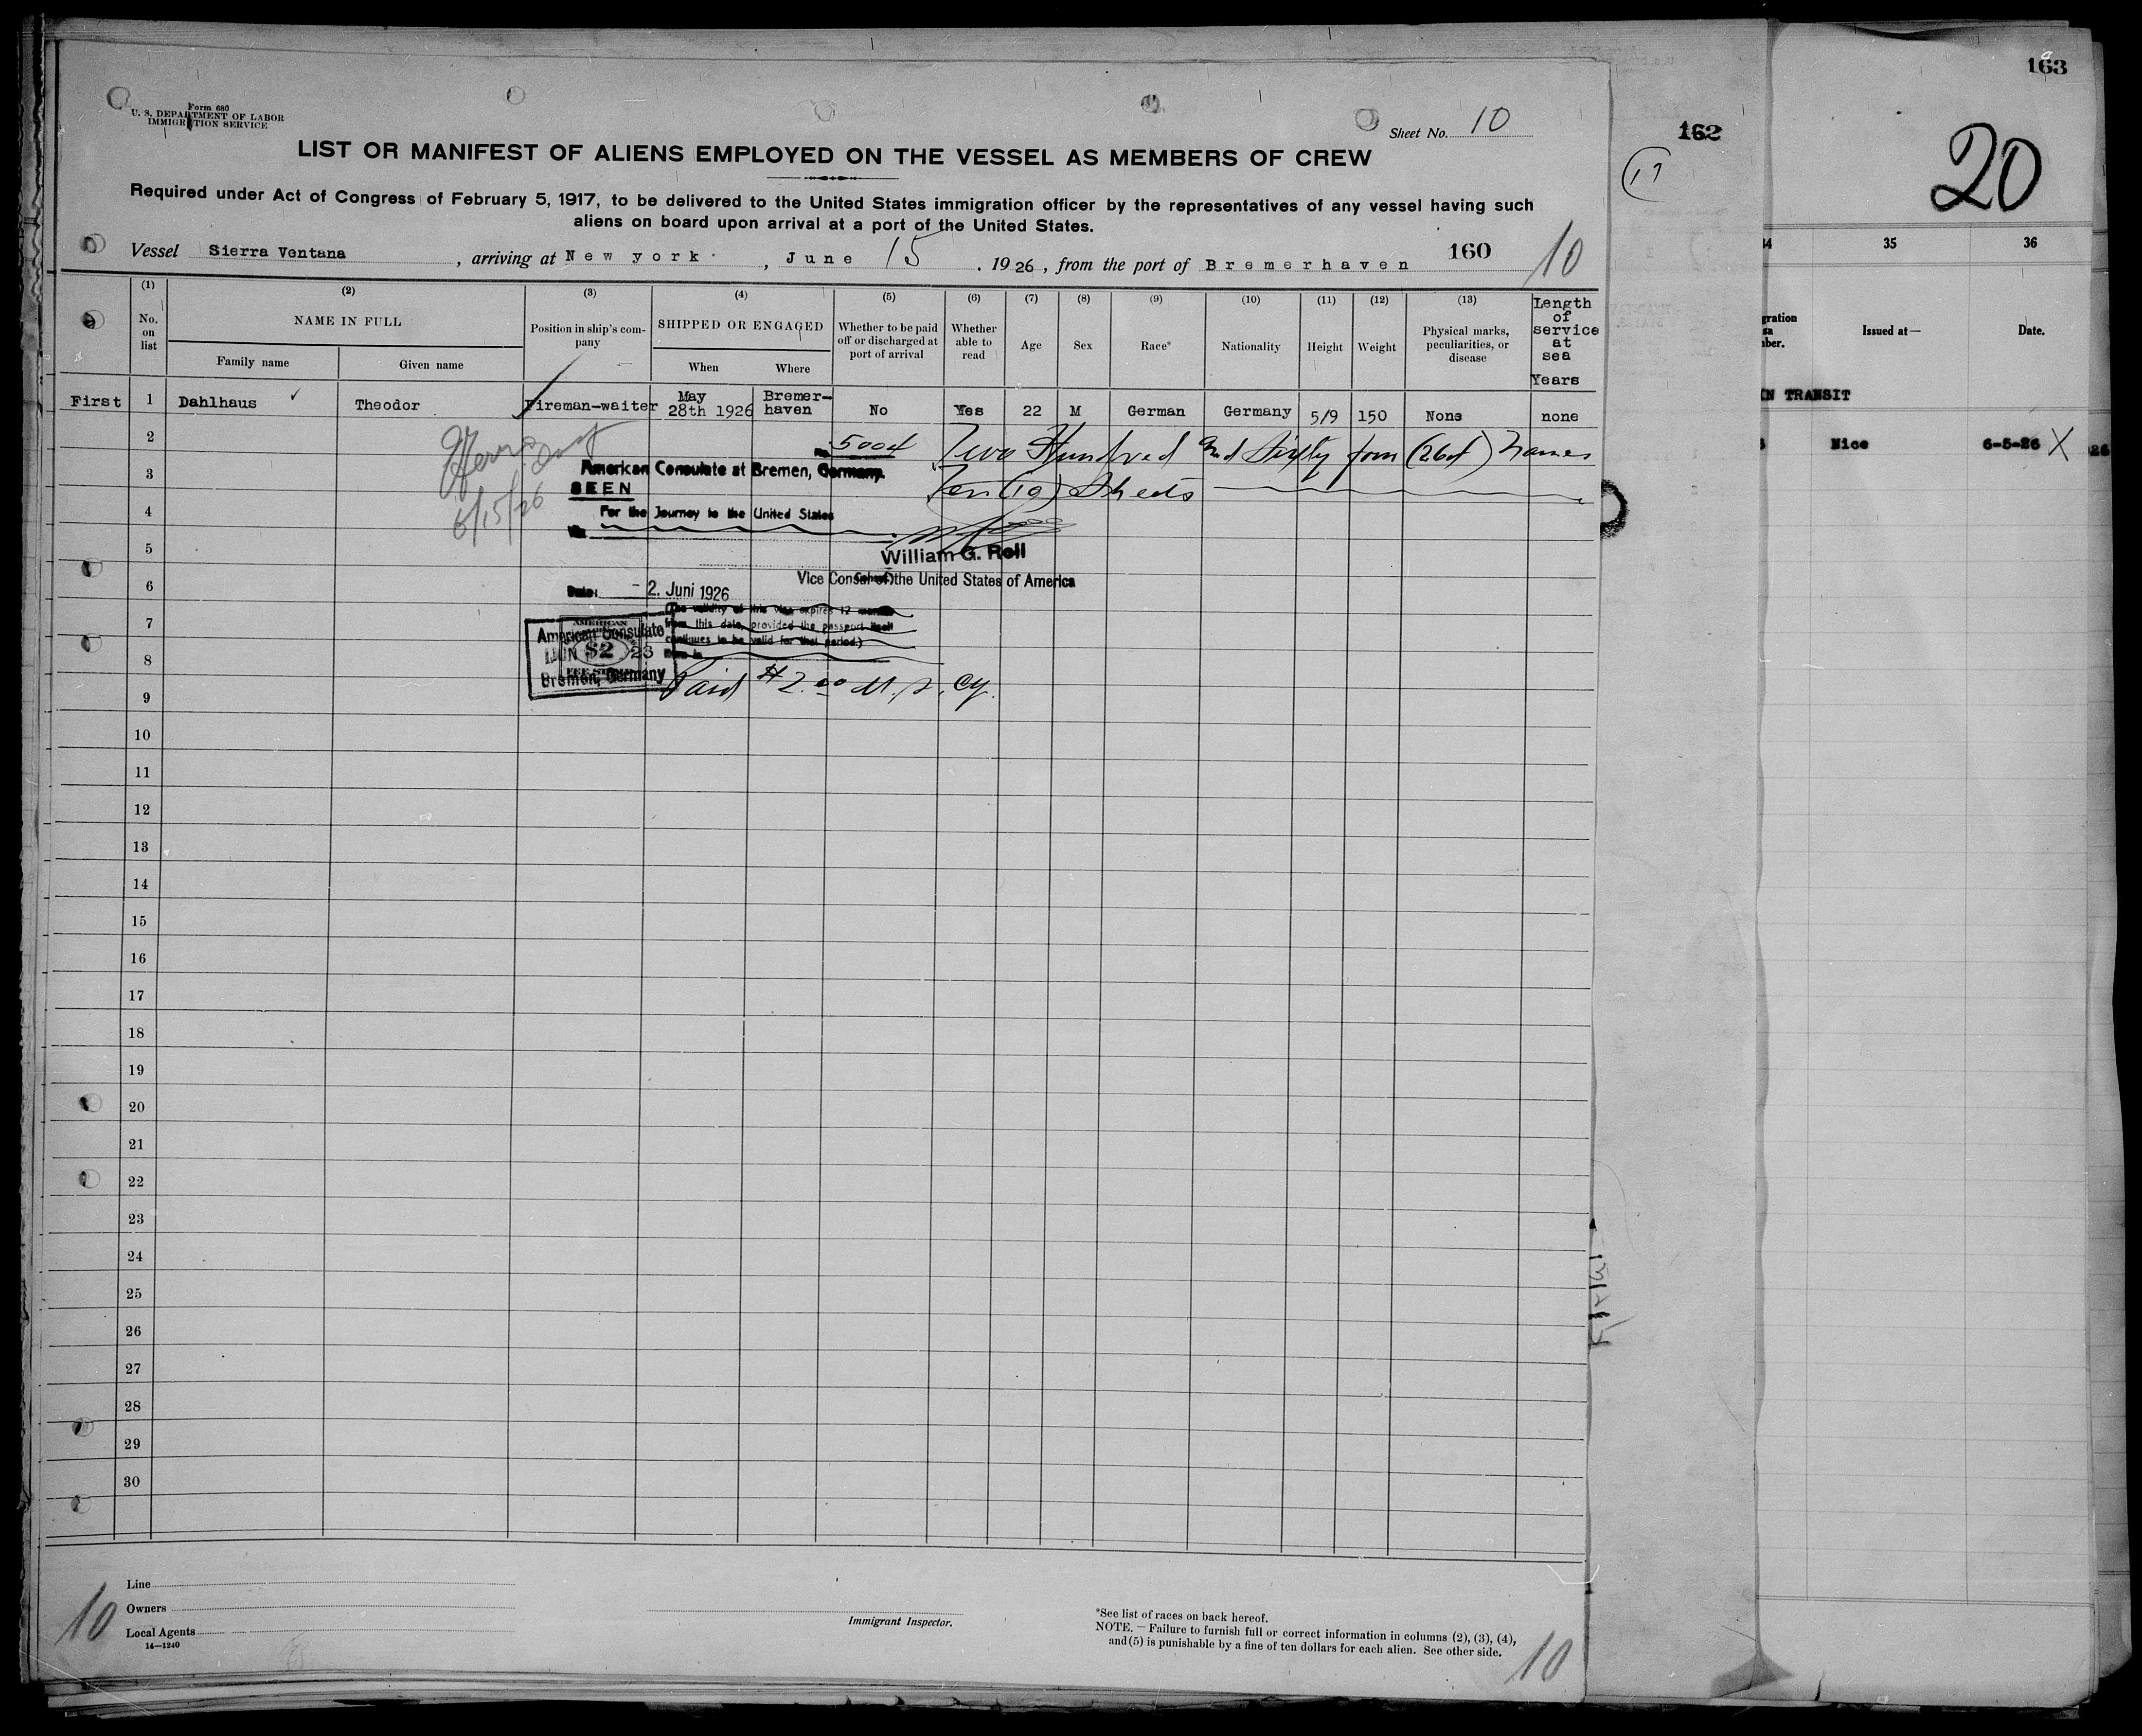 Form 680
U. S. DEPARTMENT OF LABOR
IMMIGRATION SERVICE
Sheet No. 10
LIST OR MANIFEST OF ALIENS EMPLOYED ON THE VESSEL AS MEMBERS OF CREW
Required under Act of Congress of February 5, 1917, to be delivered to the United States immigration officer by the representatives of any vessel having such
aliens on board upon arrival at a port of the United States.
Vessel Sierra Ventana, arriving at New york, June 15, 1926, from the port of Bremerhaven 160 10
(1) (2) (3) (4) (5) (6) (7) (8) (9) (10) (11) (12) (13)
No. on list
NAME IN FULL
Family name
Given name
Position in ship's company
SHIPPED OR ENGAGED
When
Where
Whether to be paid off or discharged at port of arrival
Whether able to read
Age
Sex
Race*
Nationality
Height
Weight
Physical marks, peculiarities, or disease
Length of service at sea
Years
First 1 Dahlhaus ✓ Theodor Fireman-waiter May 28th 1926 Bremerhaven No Yes 22 M German Germany 5/9 150 Nons none
2
3
4
5
6
7
8
9
10
11
12
13
14
15
16
17
18
19
20
21
22
23
24
25
26
27
28
29
30
6/15/26
No. 5004 Two Hundred and Sixty four (264) names
American Consulate at Bremen, Germany.
Ten (10) Sheets
SEEN
For the Journey to the United States
William G. Roll
Vice Consul of the United States of America
Date: - 2. Juni 1926
(The validity of this visa expires 12 months
from this date, provided the passport itself
continues to be valid for that period.)
American Consulate
$2
FEE STAMP
Bremen, Germany
Paid $2.00 U.S. Cy.
Line
Owners
Local Agents
14—1240
Immigrant Inspector.
*See list of races on back hereof.
NOTE. — Failure to furnish full or correct information in columns (2), (3), (4),
and (5) is punishable by a fine of ten dollars for each alien. See other side.
10
10
162
163
20
34 35 36
Issued at—
Date.
IN TRANSIT
Nice 6-5-26 X
26